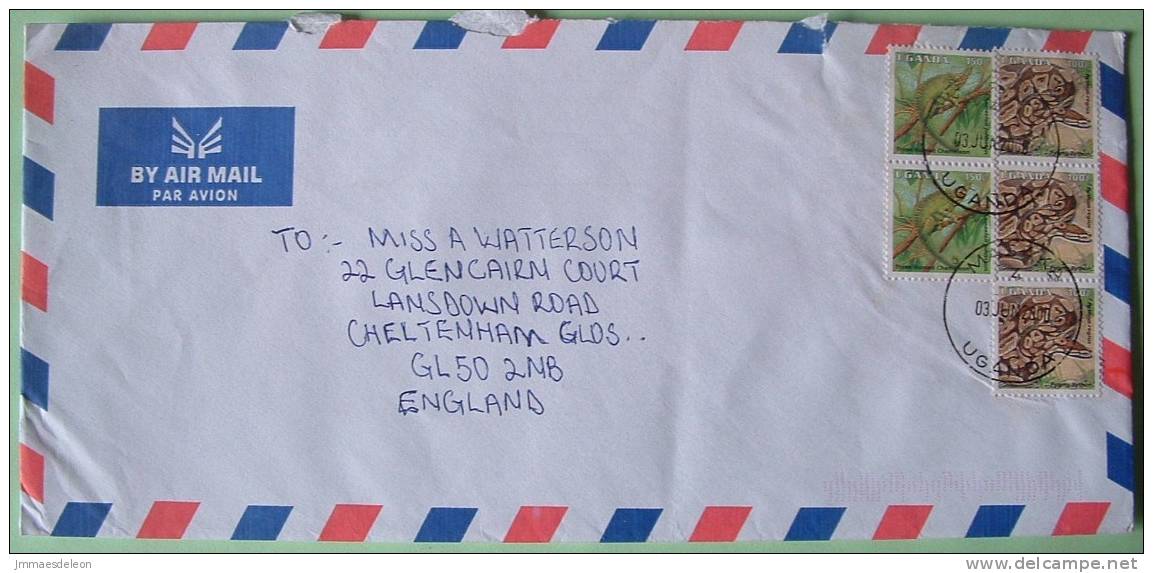 BY AIR MAIL
PAR AVION
TO :- MISS A WATTERSON
22 GLENCAIRN COURT
LANSDOWN ROAD
CHELTENHAM GLOS..
GL50 2NB
ENGLAND
UGANDA 150/-
UGANDA 300/-
UGANDA 150/-
300/-
300/-
UGANDA
03 JUN 2001
UGANDA
jmmaesdeleon
delcampe.net